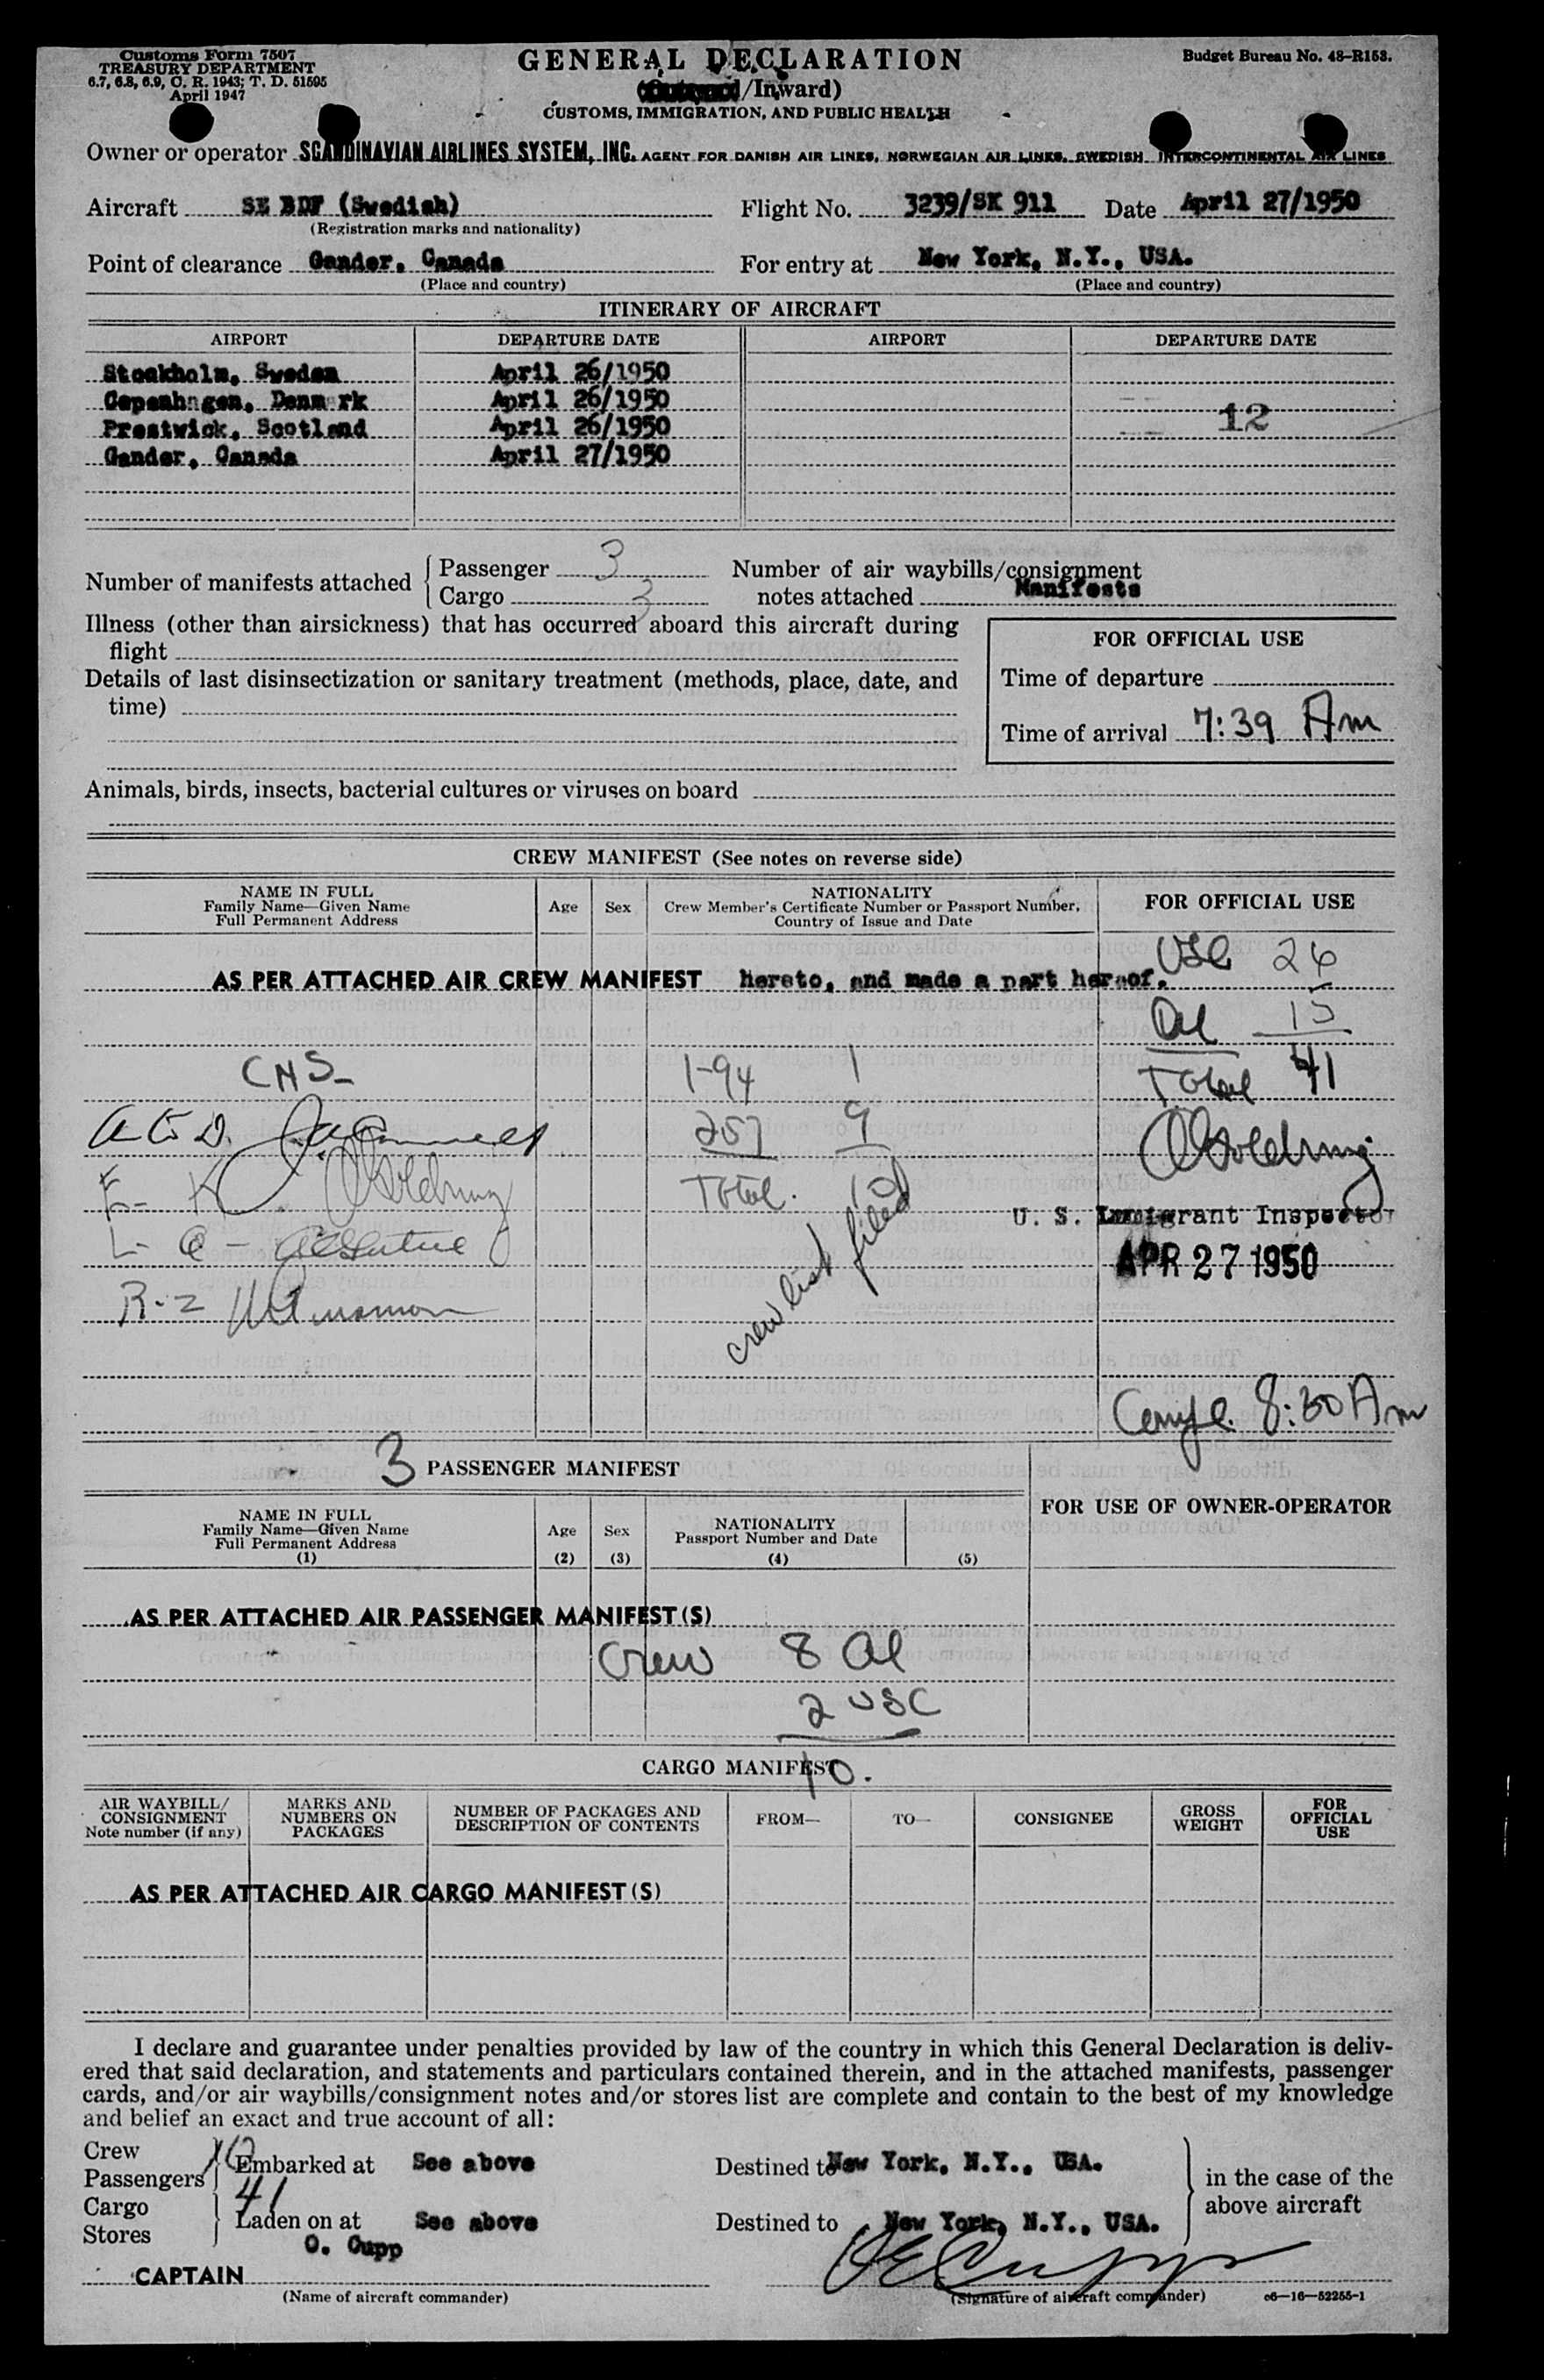 Customs Form 7507
TREASURY DEPARTMENT
6.7, 6.8, 6.9, C. R. 1943; T. D. 51595
April 1947
GENERAL DECLARATION
/Inward)
CUSTOMS, IMMIGRATION, AND PUBLIC HEALTH
Budget Bureau No. 48-R153.
Owner or operator SCANDINAVIAN AIRLINES SYSTEM, INC. AGENT FOR DANISH AIR LINES, NORWEGIAN AIR LINES, SWEDISH INTERCONTINENTAL AIR LINES
Aircraft SE BDF (Swedish) Flight No. 3239/SK 911 Date April 27/1950
(Registration marks and nationality)
Point of clearance Gander, Canada For entry at New York, N.Y., USA.
(Place and country) (Place and country)
ITINERARY OF AIRCRAFT
AIRPORT DEPARTURE DATE AIRPORT DEPARTURE DATE
Stockholm, Sweden April 26/1950
Copenhagen, Denmark April 26/1950 12
Prestwick, Scotland April 26/1950
Gander, Canada April 27/1950
Number of manifests attached
Passenger 3
Cargo 3
Number of air waybills/consignment
notes attached Manifests
Illness (other than airsickness) that has occurred aboard this aircraft during
flight
Details of last disinsectization or sanitary treatment (methods, place, date, and
time)
FOR OFFICIAL USE
Time of departure
Time of arrival 7:39 Am
Animals, birds, insects, bacterial cultures or viruses on board
CREW MANIFEST (See notes on reverse side)
NAME IN FULL
Family Name—Given Name
Full Permanent Address
Age Sex
NATIONALITY
Crew Member's Certificate Number or Passport Number,
Country of Issue and Date
FOR OFFICIAL USE
USC 26
AS PER ATTACHED AIR CREW MANIFEST hereto, and made a part hereof.
Al 15
CNS- 1-94 1 Total 41
257 9
Total. 10
crew list filed
U. S. Immigrant Inspector
APR 27 1950
8:30 Am
3 PASSENGER MANIFEST
NAME IN FULL
Family Name—Given Name
Full Permanent Address
(1)
Age
(2)
Sex
(3)
NATIONALITY
Passport Number and Date
(4) (5)
FOR USE OF OWNER-OPERATOR
AS PER ATTACHED AIR PASSENGER MANIFEST(S)
Crew 8 Al
2 USC
10.
CARGO MANIFEST
AIR WAYBILL/
CONSIGNMENT
Note number (if any)
MARKS AND
NUMBERS ON
PACKAGES
NUMBER OF PACKAGES AND
DESCRIPTION OF CONTENTS
FROM— TO— CONSIGNEE
GROSS
WEIGHT
FOR
OFFICIAL
USE
AS PER ATTACHED AIR CARGO MANIFEST(S)
I declare and guarantee under penalties provided by law of the country in which this General Declaration is deliv-
ered that said declaration, and statements and particulars contained therein, and in the attached manifests, passenger
cards, and/or air waybills/consignment notes and/or stores list are complete and contain to the best of my knowledge
and belief an exact and true account of all:
Crew 10
Passengers 41
Embarked at See above Destined to New York, N.Y., USA.
Cargo
Stores
Laden on at See above Destined to New York, N.Y., USA.
in the case of the
above aircraft
O. Cupp
CAPTAIN
(Name of aircraft commander) (Signature of aircraft commander) c6—16—52255-1